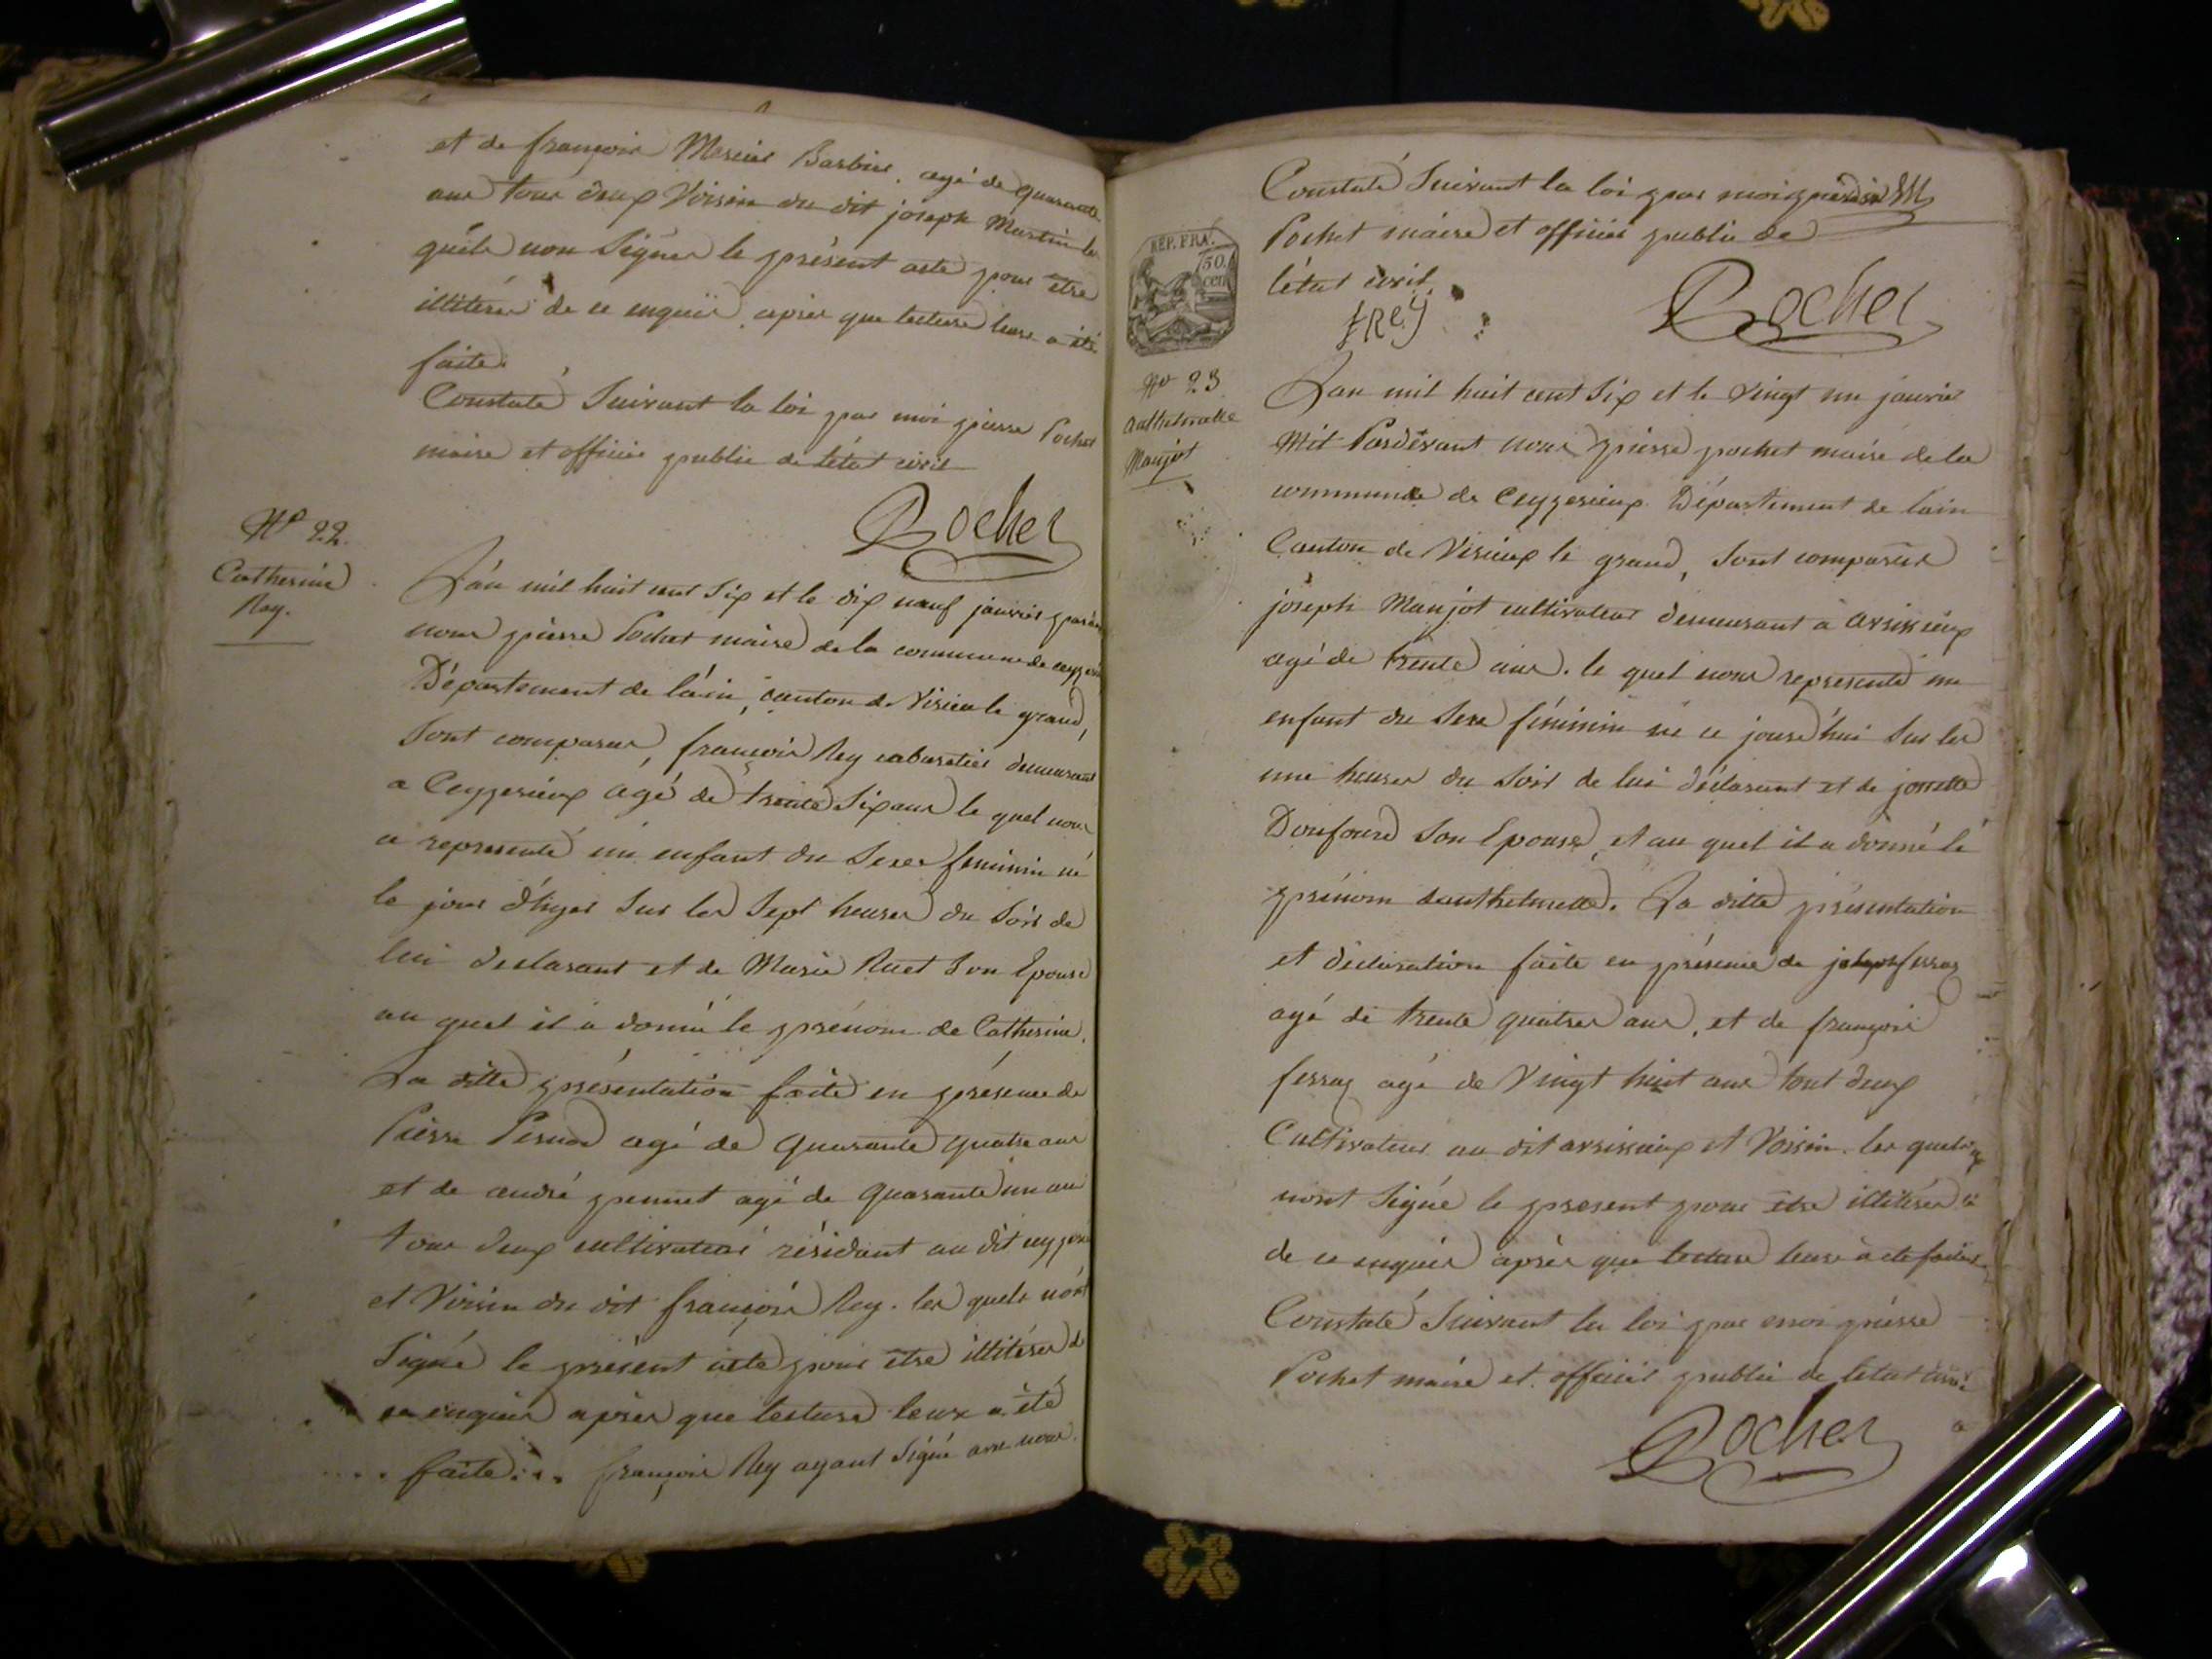 et de françois Mercier Barbier, agé de quarante
ans tous deux Voisin du dit joseph Martin les
quels non Signer le présent acte pour être
illitéré de ce enquir après que lecture leur a été
faite.
Constaté Suivant la loi par moi pierre Pochet
maire et officier public de l'état civil
Pochet
N° 22.
Catherine
Rey.
L'an mil huit cent Six et le dix neuf janvier pardev
nous pierre Pochet maire de la commune de ceyzeri
Département de l'ain, canton de Virieu le grand,
Sont comparu, françois Rey cabaretier demeurant
a Ceyzerieux agé de trente Six ans le quel nous
a representé un enfant du Sexe feminin né
le jour d'hyer Sur les Sept heures du Soir de
lui declarant et de Marie Ruet Son Epouse
au quel il a donné le prénom de Catherine.
La ditte présentation faite en présence de
Pierre Pernod agé de quarante quatre ans
et de andré pennet agé de quarante un an
tous deux cultivateurs résidant au dit ceyzeri
et Voisin du dit françois Rey. les quels n'ont
Signé le présent acte pour être illitéré d
ce enquir après que lecture leur a été
faite. françois Rey ayant Signé avec nous.
Constaté Suivant la loi par moi pierre
Pochet maire et officier public de
l'état civil
fRey
Pochet
REP. FRA.
50.
cen
No 23
Anthelmette
Manjot
L'an mil huit cent Six et le vingt un janvier
Mil Pardevant nous pierre pochet maire de la
commune de Ceyzerieux Département de lain
Canton de Virieux le grand, Sont comparus
joseph Manjot cultivateur demeurant a avrissieux
agé de trente ans. le quel nous representé un
enfant du Sexe féminin né ce jourd'hui Sur les
une heures du Soir de lui déclarant et de josette
Dufourd Son Epouse, et au quel il a donné le
prénom danthelmette. La ditte présentation
et déclaration faite en présence de joseph ferraz
agé de trente quatre ans, et de françois
ferraz agé de Vingt huit ans tout deux
Cultivateur au dit avrissieux et Voisin. les quels
nont Signé le present pour être illitéré
de ce enquir après que lecture leur à eté faite
Constaté Suivant la loi par moi pierre
Pochet maire et officier public de letat civil
Pochet